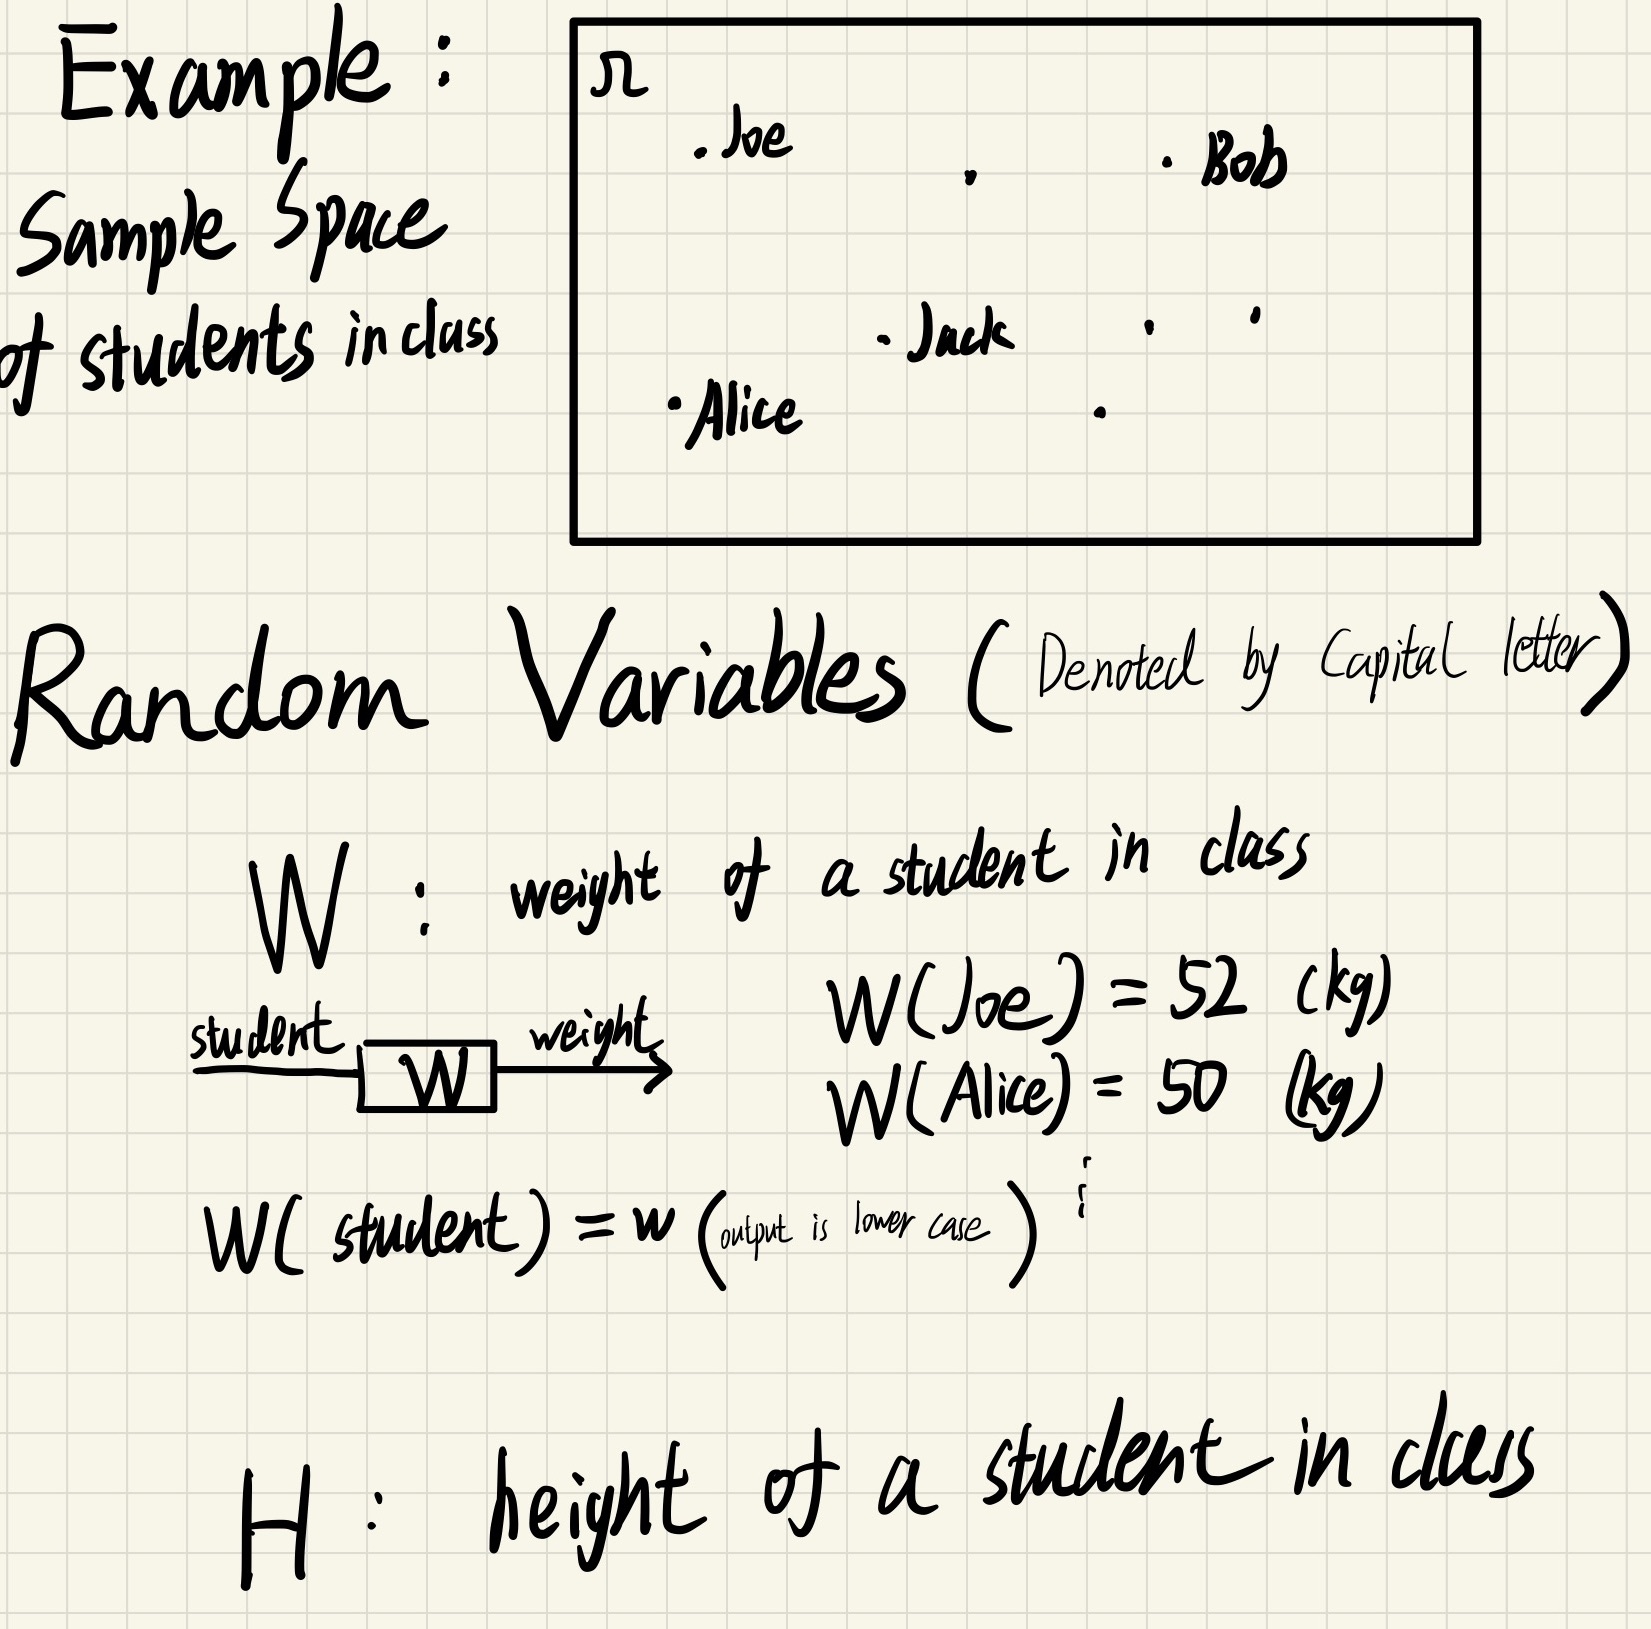 Example :
Sample Space
of students in class
Ω
. Joe
. Bob
. Jack
. Alice
Random Variables ( Denoted by Capital letter )
W : weight of a student in class
student W weight
W(Joe) = 52 (kg)
W(Alice) = 50 (kg)
⋮
W( student ) = w ( output is lower case )
H : height of a student in class